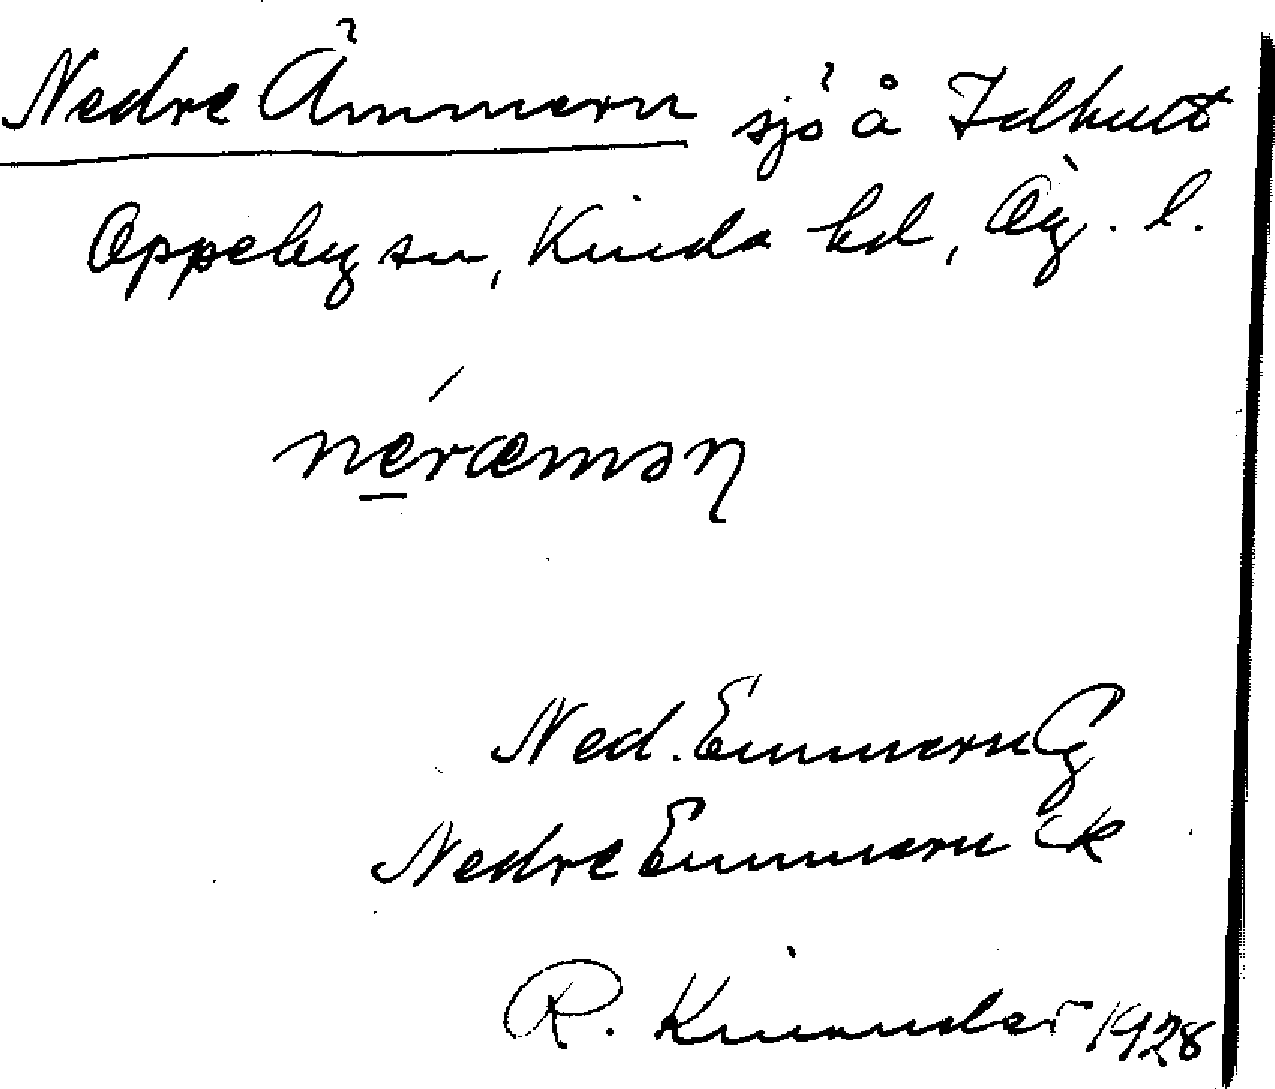 Nedre Ämmern sjö å Idhult
Oppeby sn, Kinda hd, Ög. l.
néræmən
Ned. Emmern G
Nedre Emmern Ek
R. Kinnander 1928